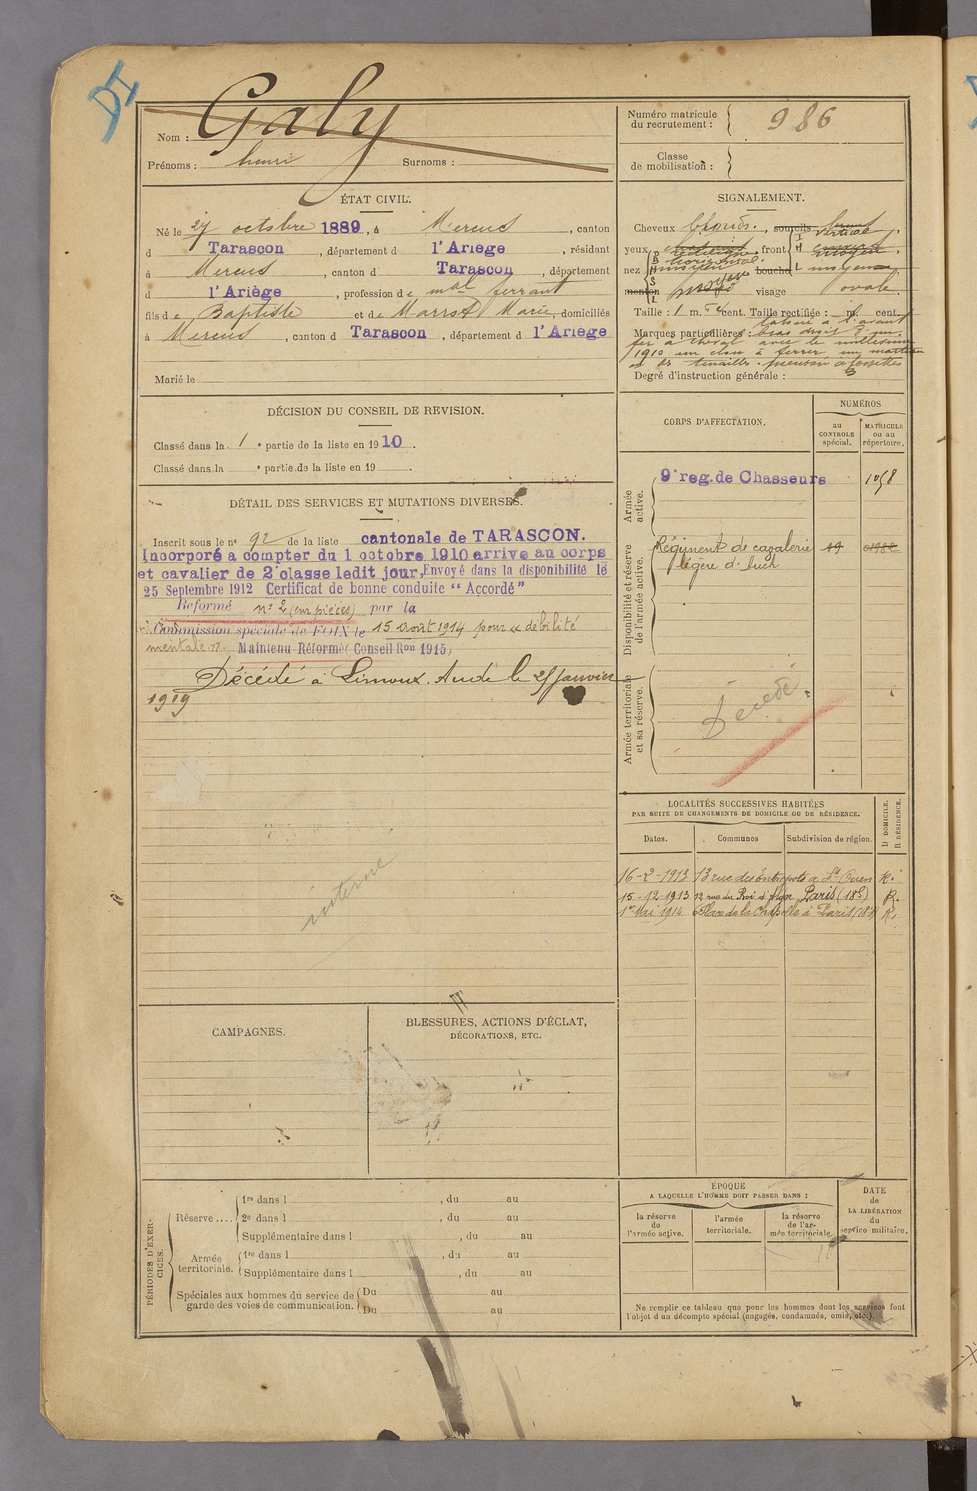 DI
Nom : Galy
Prénoms : henri Surnoms :
Numéro matricule du recrutement : 986
Classe de mobilisation :
ÉTAT CIVIL.
Né le 27 octobre 1889, à Mercus, canton
d Tarascon, département d l'Ariège, résidant
à Mercus, canton d Tarascon, département
d l'Ariège, profession de mal ferrant
fils de Baptiste et de Marrot Marie, domiciliés
à Mercus, canton d Tarascon, département d l'Ariège
Marié le
SIGNALEMENT.
Cheveux blonds, sourcils
vertical
yeux front
horizontal
nez moyen bouche moyenne
menton visage ovale
Taille : 1 m. cent. Taille rectifiée : m. cent.
Marques particulières : tatoué à l'avant
bras droit d'un
fer à cheval avec le millésime
1910 un clou à ferrer un marteau
et des tenailles.
Degré d'instruction générale : 3
DÉCISION DU CONSEIL DE REVISION.
Classé dans la 1e partie de la liste en 1910.
Classé dans la e partie de la liste en 19 .
DÉTAIL DES SERVICES ET MUTATIONS DIVERSES.
Inscrit sous le no 92 de la liste cantonale de TARASCON.
Incorporé à compter du 1 octobre 1910 arrivé au corps
et cavalier de 2e classe ledit jour, Envoyé dans la disponibilité le
25 Septembre 1912 Certificat de bonne conduite "Accordé"
Réformé no 2 (sur pièces) par la
Commission spéciale de FOIX le 15 Août 1914 pour « débilité
mentale. » Maintenu Réformé (Conseil Ron 1915)
Décédé à Limoux. Aude le 25 Janvier
1919
interné
CORPS D'AFFECTATION.
NUMÉROS
au CONTROLE spécial.
MATRICULE ou au répertoire.
Armée active.
9e reg. de Chasseurs 1058
Disponibilité et réserve de l'armée active.
Régiment de cavalerie 19
légère d'Auch
Armée territoriale et sa réserve.
Décédé
LOCALITÉS SUCCESSIVES HABITÉES
PAR SUITE DE CHANGEMENTS DE DOMICILE OU DE RÉSIDENCE.
D DOMICILE.
R RÉSIDENCE.
Dates. Communes Subdivision de région.
16-2-1913 13 rue des Entrepots à St Ouen R.
15-12-1913 12 rue du Roi d'Alger Paris (18e) R.
1er Mai 1914 6 Place de la Chapelle à Paris (18e) R.
CAMPAGNES.
BLESSURES, ACTIONS D'ÉCLAT,
DÉCORATIONS, ETC.
PÉRIODES D'EXERCICES.
Réserve .... 1re dans l , du au
2e dans l , du au
Supplémentaire dans l , du au
Armée territoriale. 1re dans l , du au
Supplémentaire dans l , du au
Spéciales aux hommes du service de garde des voies de communication. Du au
Du au
ÉPOQUE
A LAQUELLE L'HOMME DOIT PASSER DANS :
la réserve de l'armée active.
l'armée territoriale.
la réserve de l'armée territoriale.
DATE de LA LIBÉRATION du service militaire.
Ne remplir ce tableau que pour les hommes dont les services font
l'objet d'un décompte spécial (engagés, condamnés, omis, etc.).